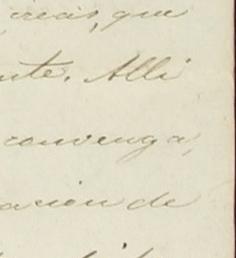 creais, que
nte. Alli
convenga,
acion de